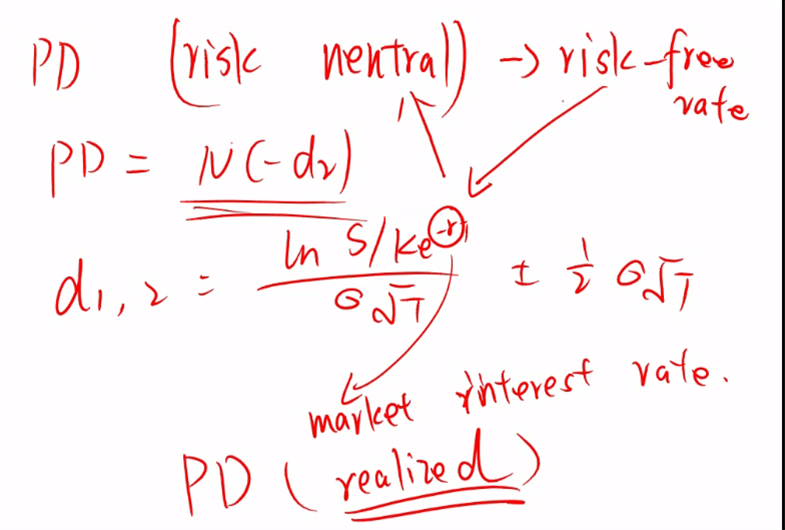 PD (risk neutral) → risk-free
rate
PD = N(-d₂)
d₁,₂ = ln S/Ke^(-rT) / σ√T ± ½ σ√T
market interest rate.
PD (realized)